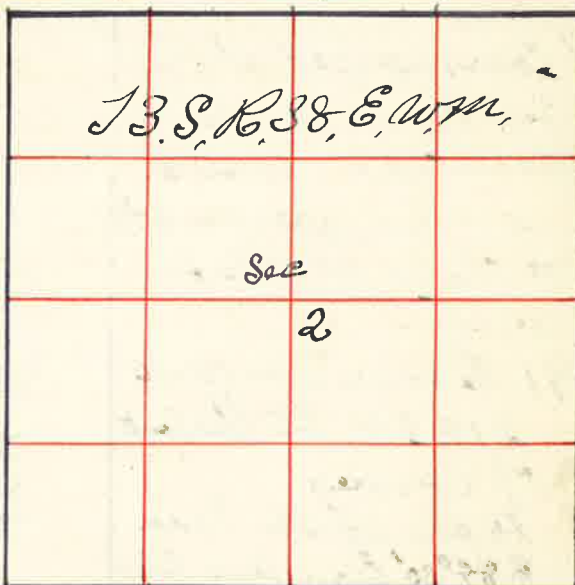 T3.S, R,38, E, W.M,
Sec
2